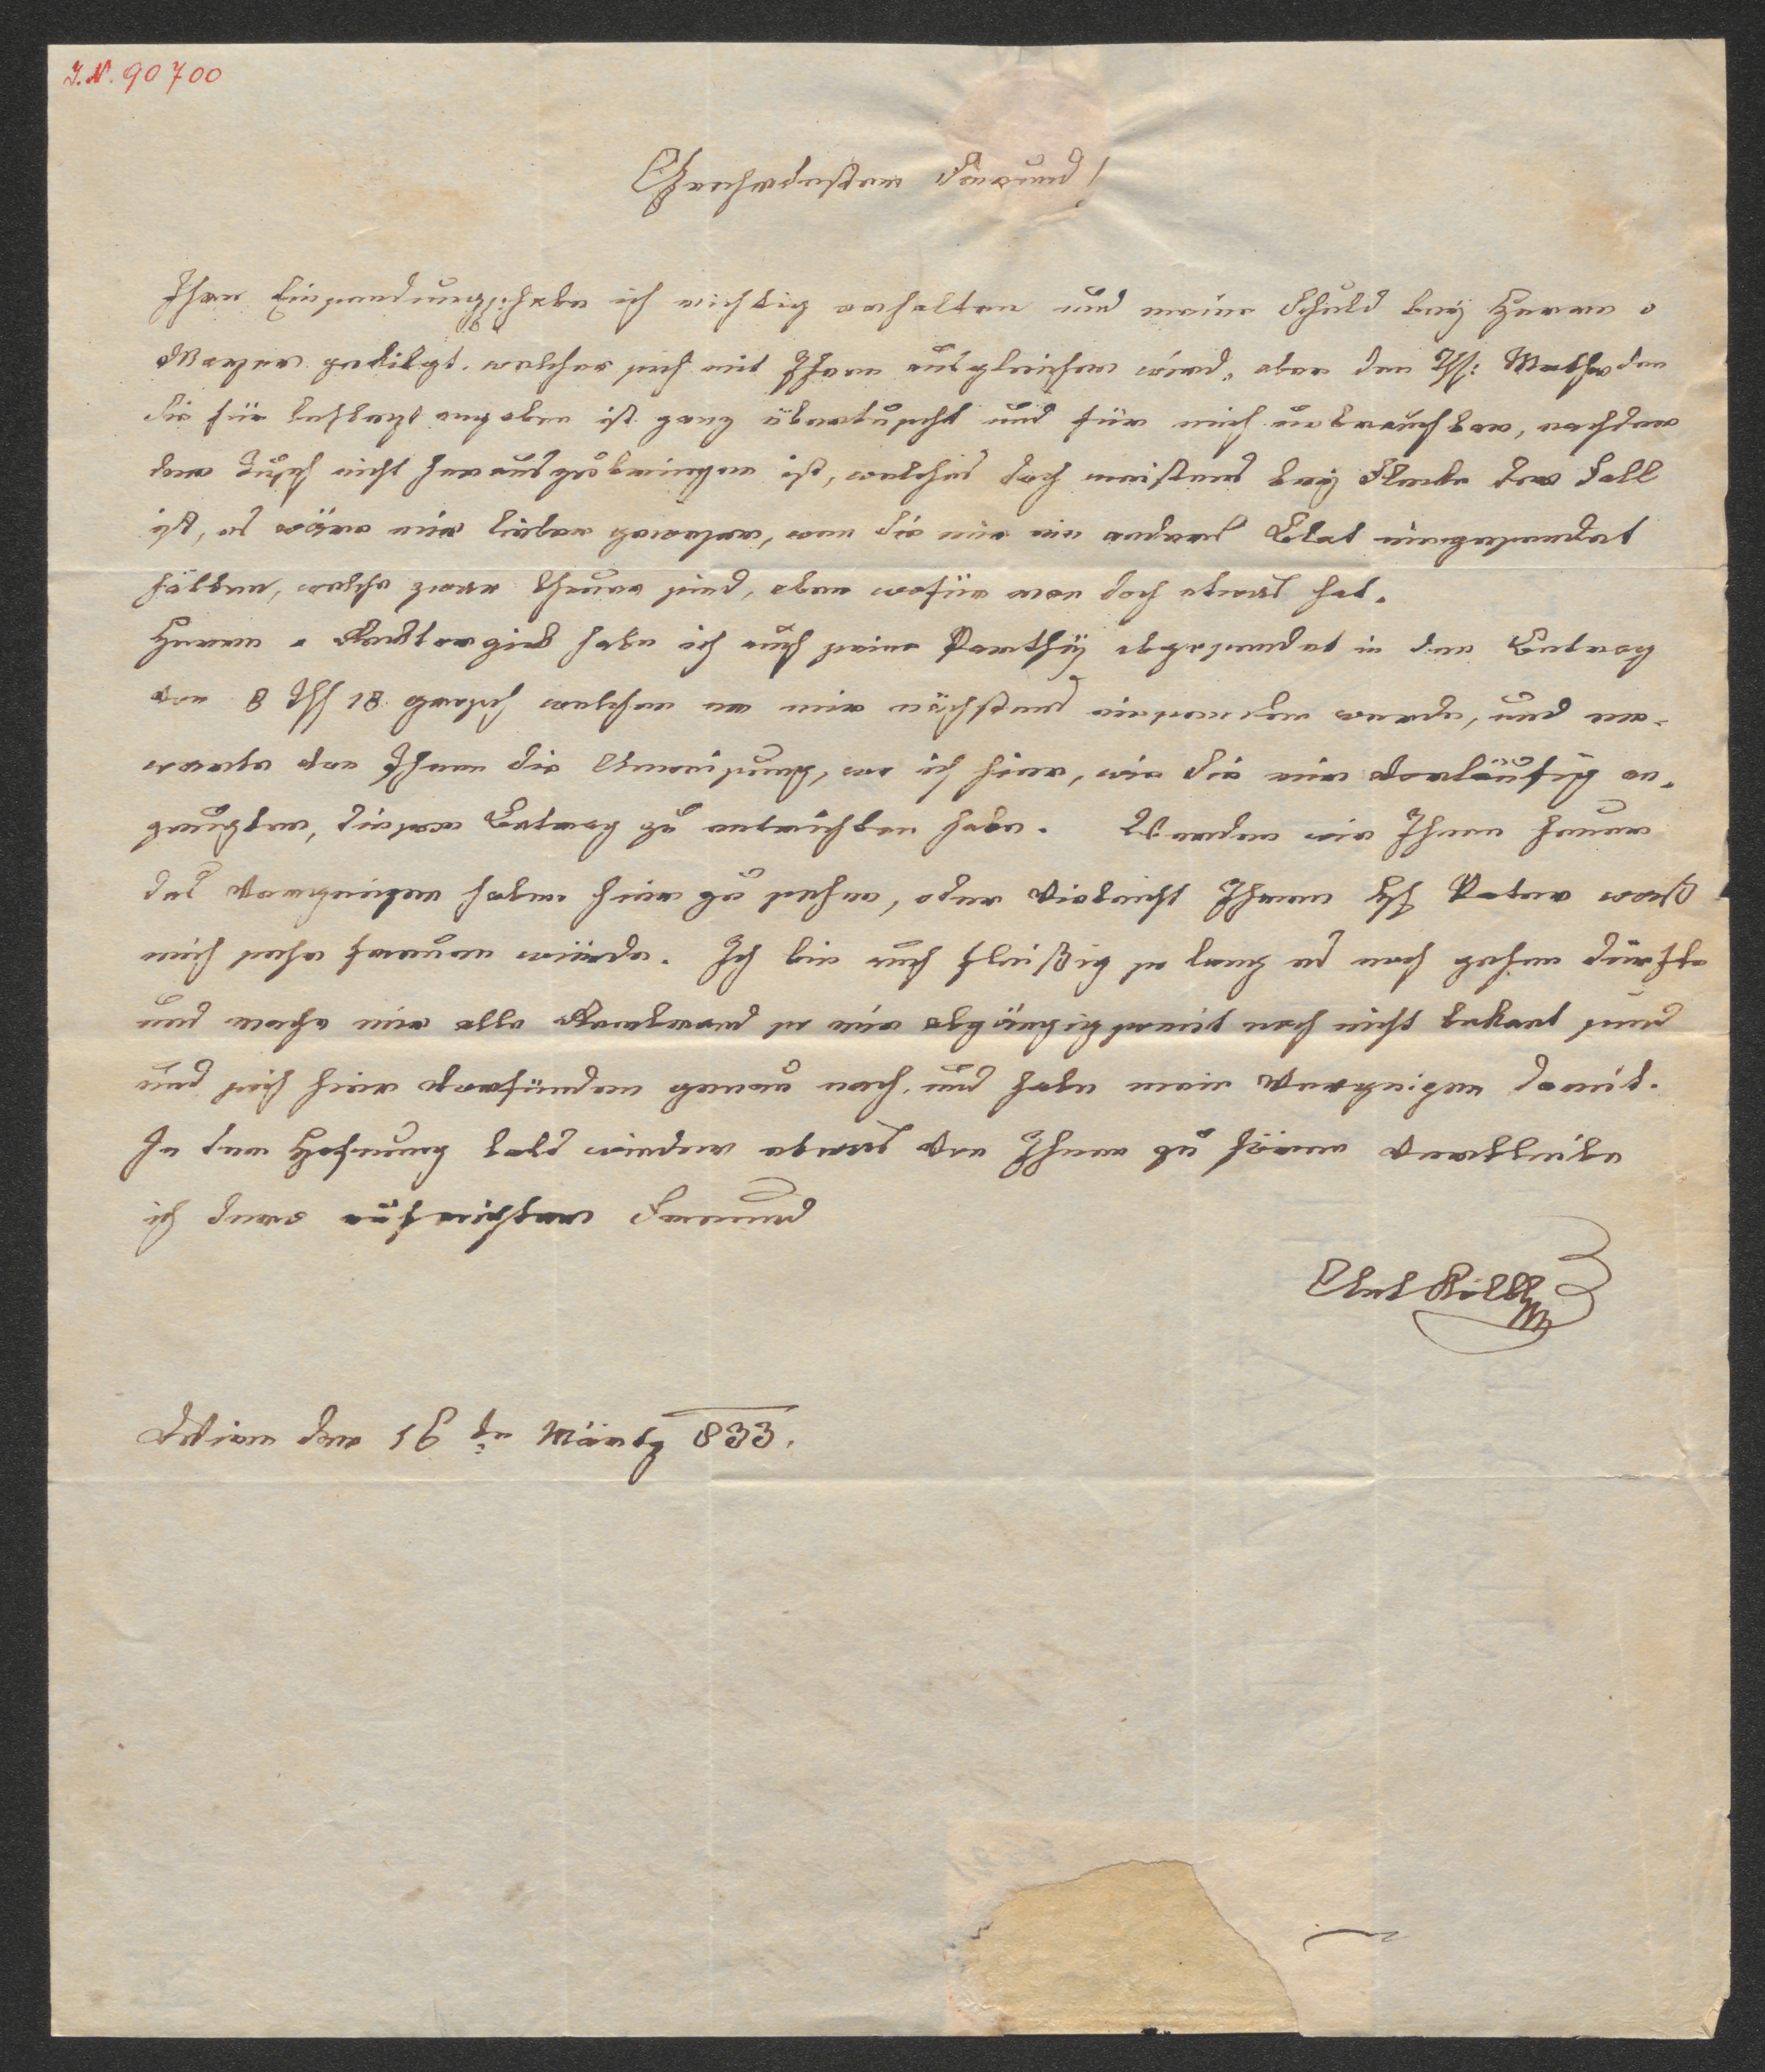 I.N. 90700
Geehrdester Freund!
Ihre Einsendung habe ich richtig erhalten und meine Schuld bey Herrn v
Mayer getilgt, welcher sich mit Ihnen ausgleichen wird, aber den
die für angeben ist ganz übertuscht und für mich unbrauchbar, nachdem
der Tusch nicht herauszubringen ist, welches doch meistens bey der Fall
ist, es wäre mir lieber gewesen, wen Sie mir ein anders Blat eingesendet
hätten, welche zwar theuer sind, aber wofür man doch etwas hat.
Herrn v habe ich auch seine Parthÿ abgesendet in den Betrag
von 8 18 welchen er mir nächstens einsenden werde, und er-
warte von Ihnen die Anweisung, wo ich hier, wie Sie mir vorläufig an-
zeugten, diesen Betrag zu entrichten habe. Werden wir Ihnen heuer
das Vergnigen haben hier zu sehen, oder Vieleicht Ihren Vater waß
mich sehr freuen würde. Ich bin auch fleißig so lang es noch gehen dürfte
und mache mir alle so mir abgängig somit noch nicht bekant sind
und sich hier vorfinden genau nach, und habe mein Vergnigen damit.
In der Hofnung bald wieder etwas von Ihnen zu hören Verbleibe
ich Euer aufrichter Freund
Wien den 16 tn Märtz 833.